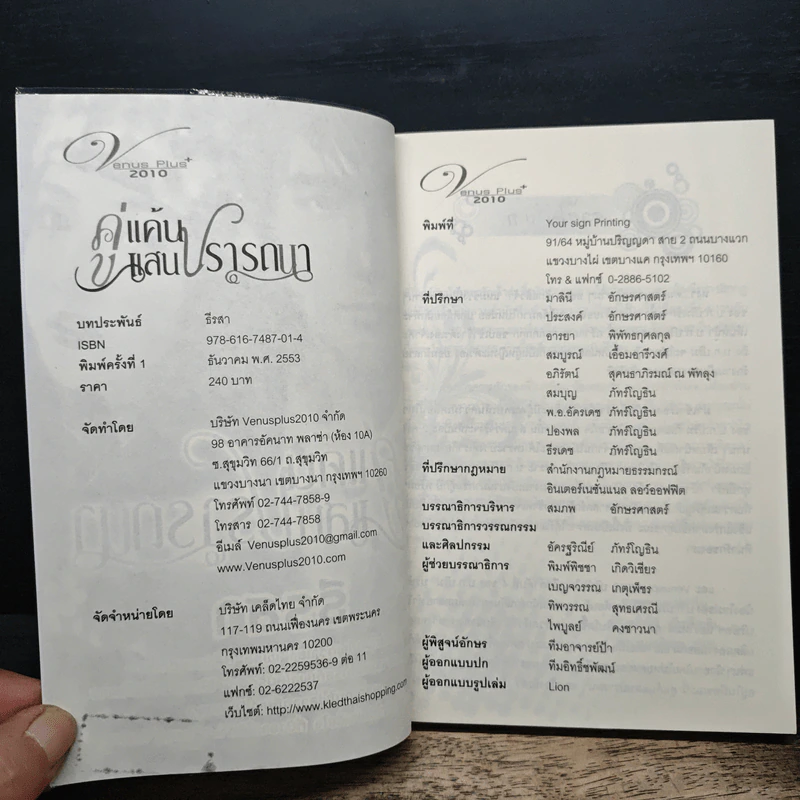 Venus Plus+
2010
คู่แค้น
แสนปรารถนา
บทประพันธ์ ธีรสา
ISBN 978-616-7487-01-4
พิมพ์ครั้งที่ 1 ธันวาคม พ.ศ. 2553
ราคา 240 บาท
จัดทำโดย บริษัท Venusplus2010 จำกัด
98 อาคารอัคนาท พลาซ่า (ห้อง 10A)
ซ.สุขุมวิท 66/1 ถ.สุขุมวิท
แขวงบางนา เขตบางนา กรุงเทพฯ 10260
โทรศัพท์ 02-744-7858-9
โทรสาร 02-744-7858
อีเมล์ Venusplus2010@gmail.com
www.Venusplus2010.com
จัดจำหน่ายโดย บริษัท เคล็ดไทย จำกัด
117-119 ถนนเฟื่องนคร เขตพระนคร
กรุงเทพมหานคร 10200
โทรศัพท์: 02-2259536-9 ต่อ 11
แฟกซ์: 02-6222537
เว็บไซต์: http://www.kledthaishopping.com
Venus Plus+
2010
พิมพ์ที่ Your sign Printing
91/64 หมู่บ้านปริญญดา สาย 2 ถนนบางแวก
แขวงบางไผ่ เขตบางแค กรุงเทพฯ 10160
โทร & แฟกซ์ 0-2886-5102
ที่ปรึกษา มาลินี อักษรศาสตร์
ประสงค์ อักษรศาสตร์
อารยา พิพัทธกุศลกุล
สมบูรณ์ เอื้อมอารีวงศ์
อภิรัตน์ สุคนธาภิรมณ์ ณ พัทลุง
สมบุญ ภัทร์โญธิน
พ.อ.อัครเดช ภัทร์โญธิน
ปองพล ภัทร์โญธิน
ธีรเดช ภัทร์โญธิน
ที่ปรึกษากฎหมาย สำนักงานกฎหมายธรรมกรณ์
อินเตอร์เนชั่นแนล ลอว์ออฟฟิต
บรรณาธิการบริหาร สมภพ อักษรศาสตร์
บรรณาธิการวรรณกรรม
และศิลปกรรม อัครฐริณีย์ ภัทร์โญธิน
ผู้ช่วยบรรณาธิการ พิมพ์พิชชา เกิดวิเชียร
เบญจวรรณ เกตุเพ็ชร
ทิพวรรณ สุทธเศรณี
ไพบูลย์ คงชาวนา
ผู้พิสูจน์อักษร ทีมอาจารย์ป้า
ผู้ออกแบบปก ทีมอิทธิ์ชพัฒน์
ผู้ออกแบบรูปเล่ม Lion